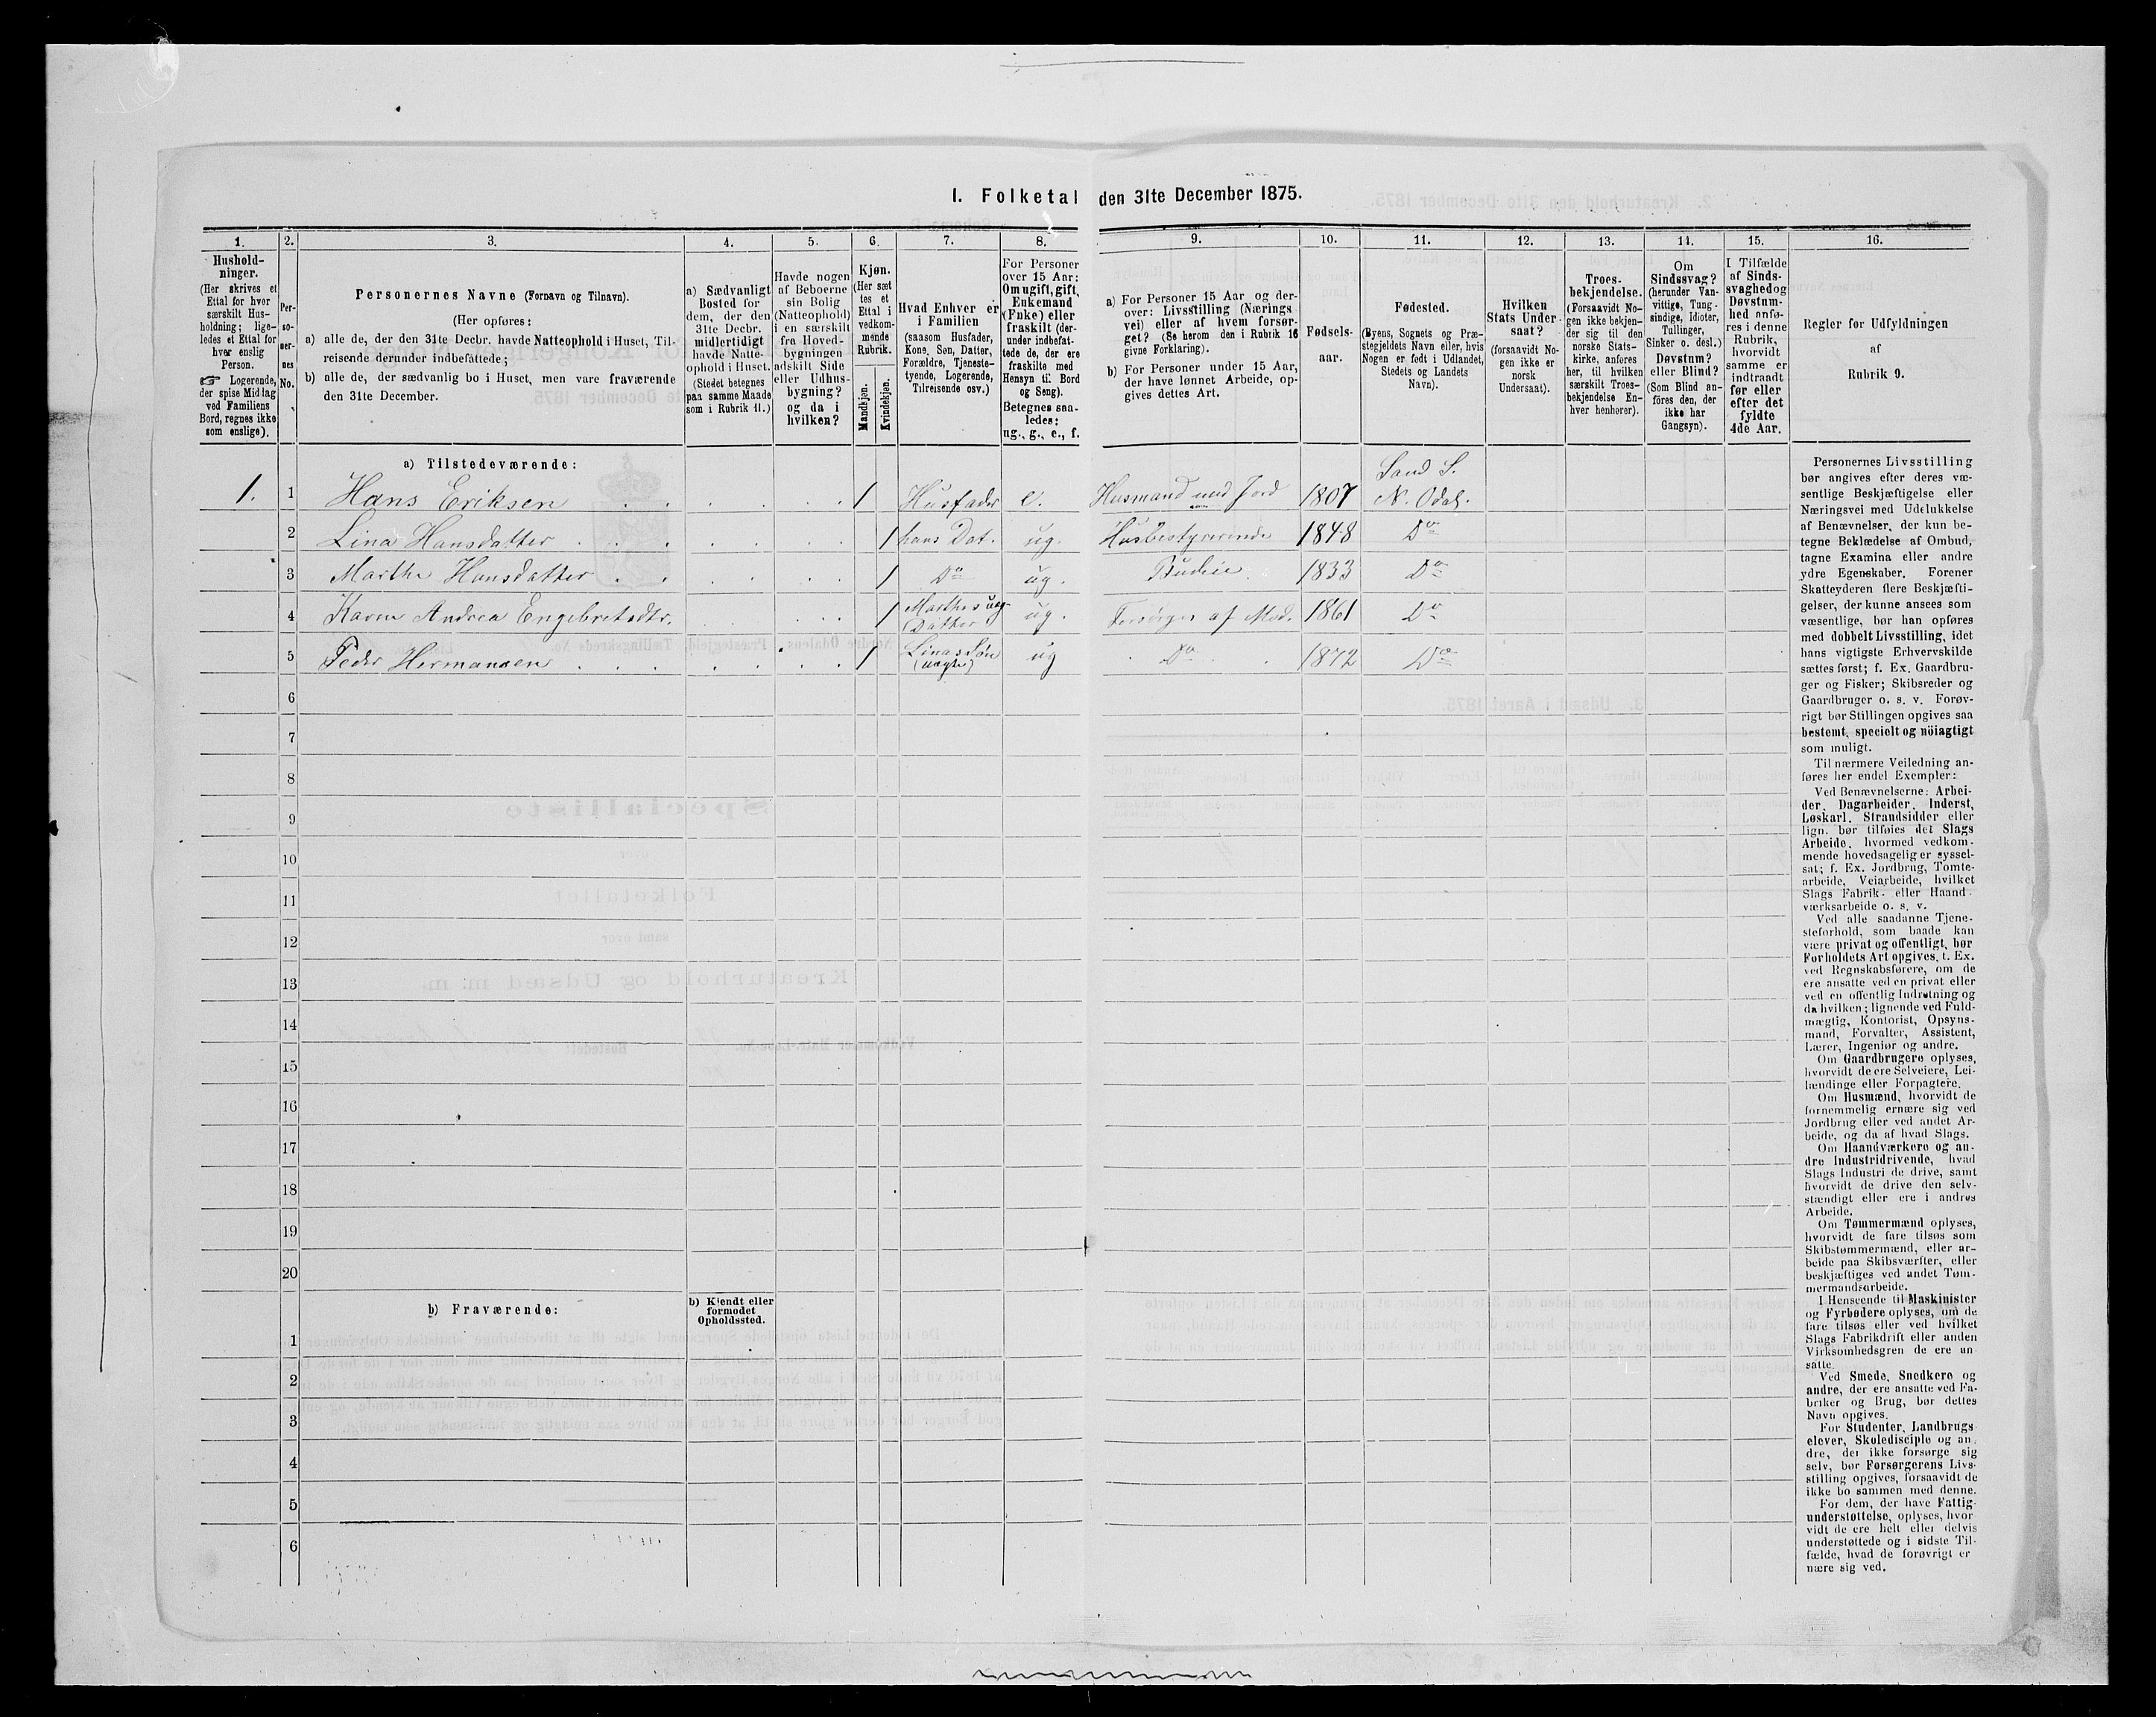 I. Folketal den 31te December 1875.
1. 2. 3. 4. 5. 6. 7. 8. 9. 10. 11. 12. 13. 14. 15. 16.
Hushold-
ninger.
(Her skrives et
Ettal for hver
særskilt Hus-
holdning; lige-
ledes et Ettal for
hver enslig
Person.
☞ Logerende,
der spise Middag
ved Familiens
Bord, regnes ikke
som enslige).
Per-
so-
ner-
nes
No.
Personernes Navne (Fornavn og Tilnavn).
(Her opføres:
a) alle de, der den 31te Decbr. havde Natteophold i Huset, Til-
reisende derunder indbefattede;
b) alle de, der sædvanlig bo i Huset, men vare fraværende
den 31te December.
a) Sædvanligt
Bosted for
dem, der den
31te Decbr.
midlertidigt
havde Natte-
ophold i Huset.
(Stedet betegnes
paa samme Maade
som i Rubrik 11.)
Havde nogen
af Beboerne
sin Bolig
(Natteophold)
i en særskilt
fra Hoved-
bygningen
adskilt Side
eller Udhus-
bygning?
og da i
hvilken?
Kjøn.
(Her sæt
tes et
Ettal i
vedkom-
mende
Rubrik.
Mandkjøn.
Kvindekjøn.
Hvad Enhver er
i Familien
(saasom Husfader,
Kone, Søn, Datter,
Forældre, Tjeneste-
tyende, Logerende,
Tilreisende osv.)
For Personer
over 15 Aar:
Om ugift, gift,
Enkemand
(Enke) eller
fraskilt (der-
under indbefat-
tede de, der ere
fraskilte med
Hensyn til Bord
og Seng).
Betegnes saa-
ledes:
ug., g., e., f.
a) For Personer 15 Aar og der-
over: Livsstilling (Nærings
vei) eller af hvem forsør-
get? (Se herom den i Rubrik 16
givne Forklaring).
b) For Personer under 15 Aar,
der have lønnet Arbeide, op-
gives dettes Art.
Fødsels-
aar.
Fødested.
(Byens, Sognets og Præ-
stegjeldets Navn eller, hvis
Nogen er født i Udlandet,
Stedets og Landets
Navn).
Hvilken
Stats Under-
saat?
(forsaavidt No-
gen ikke er
norsk
Undersaat).
Troes-
bekjendelse.
(Forsaavidt No-
gen ikke bekjen-
der sig til den
norske Stats-
kirke, anføres
her, til hvilken
særskilt Troes-
bekjendelse En-
hver henhører).
Om
Sindssvag?
(herunder Van-
vittige, Tung-
sindige, Idioter,
Tullinger,
Sinker o. desl.)
Døvstum?
eller Blind?
(Som Blind an-
föres den, der
ikke har
Gangsyn).
I Tilfælde
af Sinds-
svaghed og
Døvstum-
hed anfø-
res i denne
Rubrik,
hvorvidt
samme er
indtraadt
før eller
efter det
fyldte
4de Aar.
Regler for Udfyldningen
af
Rubrik 9.
a) Tilstedeværende:
1. 1 Hans Eriksen 1 Husfader e. Husmand med Jord 1807 Sand S. N. Odal.
2 Lina Hansdatter 1 hans Dat. ug. Husbestyrerinde 1848 Do
3 Marthe Hansdatter 1 Do ug. Budeie 1833 Do
4 Karen Andrea Engebretsdtr. 1 Marthes uæg- Datter ug. Forsörges af Mod. 1861 Do
5 Peder Hermansen 1 Linas Søn (uægte) ug Do 1872 Do
6
7
8
9
10
11
12
13
14
15
16
17
18
19
20
b) Fraværende:
b) Kjendt eller
formodet
Opholdssted.
1
2
3
4
5
6
Personernes Livsstilling
bør angives efter deres væ-
sentlige Beskjæftigelse eller
Næringsvei med Udelukkelse
af Benævnelser, der kun be-
tegne Beklædelse af Ombud,
tagne Examina eller andre
ydre Egenskaber. Forener
Skatteyderen flere Beskjæfti-
gelser, der kunne ansees som
væsentlige, bør han opføres
med dobbelt Livsstilling, idet
hans vigtigste Erhvervskilde
sættes først; f. Ex. Gaardbru-
ger og Fisker; Skibsreder og
Gaardbruger o. s. v. Forøv-
rigt bør Stillingen opgives saa
bestemt, specielt og nöiagtigt
som muligt.
Til nærmere Veiledning an-
føres her endel Exempler:
Ved Benævnelserne: Arbei-
der, Dagarbeider, Inderst,
Løskarl, Strandsidder eller
lign. bør tilføies det Slags
Arbeide, hvormed vedkom-
mende hovedsagelig er syssel-
sat; f. Ex. Jordbrug, Tomte-
arbeide, Veiarbeide, hvilket
Slags Fabrik- eller Haand-
værksarbeide o. s. v.
Ved alle saadanne Tjene-
steforhold, som baade kan
være privat og offentligt, bør
Forholdets Art opgives, f. Ex.
ved Regnskabsførere, om de
ere ansatte ved en privat eller
ved en offentlig Indretning og
da hvilken; lignende ved Fuld-
mægtig, Kontorist, Opsyns-
mand, Forvalter, Assistent,
Lærer, Ingeniør og andre.
Om Gaardbrugere oplyses,
hvorvidt de ere Selveiere, Lei-
lændinge eller Forpagtere.
Om Husmænd, hvorvidt de
fornemmelig ernære sig ved
Jordbrug eller ved andet Ar-
beide, og da af hvad Slags.
Om Haandværkere og an-
dre Industridrivende, hvad
Slags Industri de drive, samt
hvorvidt de drive den selv-
stændigt eller ere i andres
Arbeide.
Om Tømmermænd oplyses,
hvorvidt de fare tilsøs som
Skibstømmermænd, eller ar-
beide paa Skibsværfter, eller
beskjæftiges ved andet Tøm-
mermandsarbeide.
I Henseende til Maskinister
og Fyrbødere oplyses, om de
fare tilsøs eller ved hvilket
Slags Fabrikdrift eller anden
Virksomhedsgren de ere an-
satte.
Ved Smede, Snedkere og
andre, der ere ansatte ved Fa-
briker og Brug, bør dettes
Navn opgives.
For Studenter, Landbrugs-
elever, Skoledisciple og an-
dre, der ikke forsørge sig
selv, bør Forsørgerens Livs-
stilling opgives, forsaavidt de
ikke bo sammen med denne.
For dem, der have Fattig-
understøttelse, oplyses, hvor-
vidt de ere helt eller delvis
understøttede og i sidste Til-
fælde, hvad de forøvrigt er-
nære sig ved.